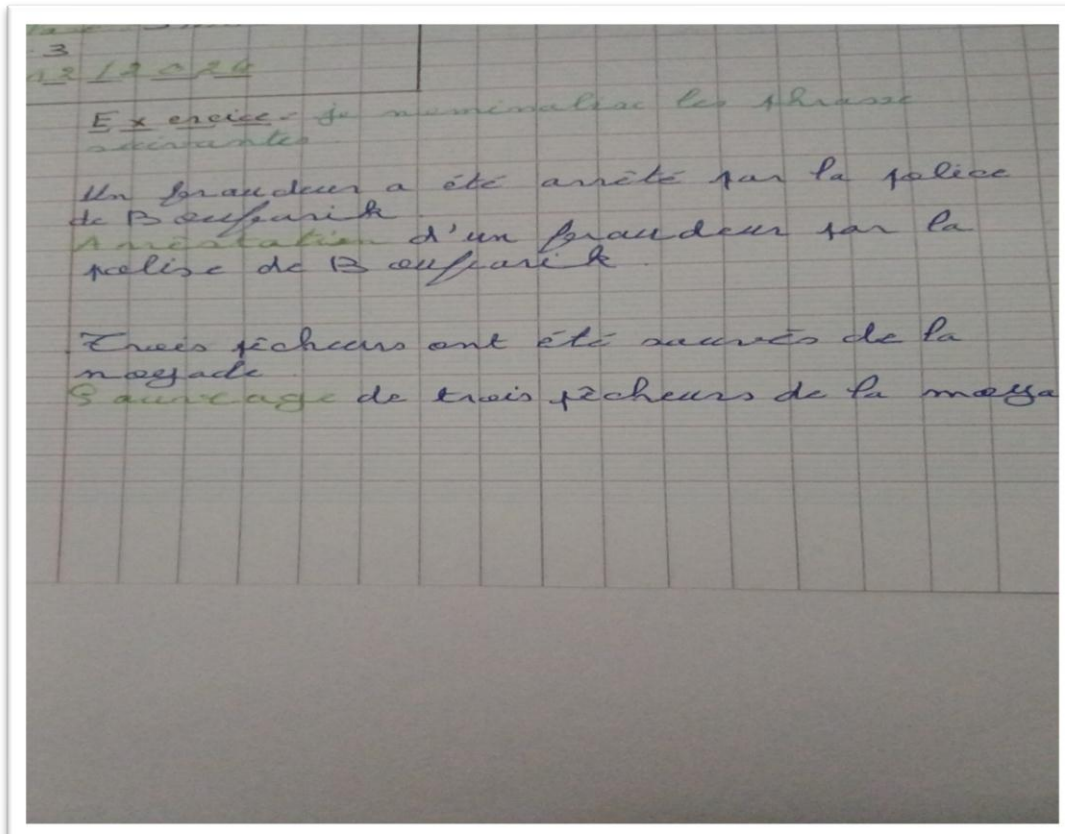 3
12/2024
Exercice - Je nominalise les phrase
suivantes
Un fraudeur a été arrêté par la police
de Boufarik.
Arrestation d'un fraudeur par la
polise de Boufarik.
Trois pêcheurs ont été sauvés de la
noyade.
Sauvetage de trois pêcheurs de la noya